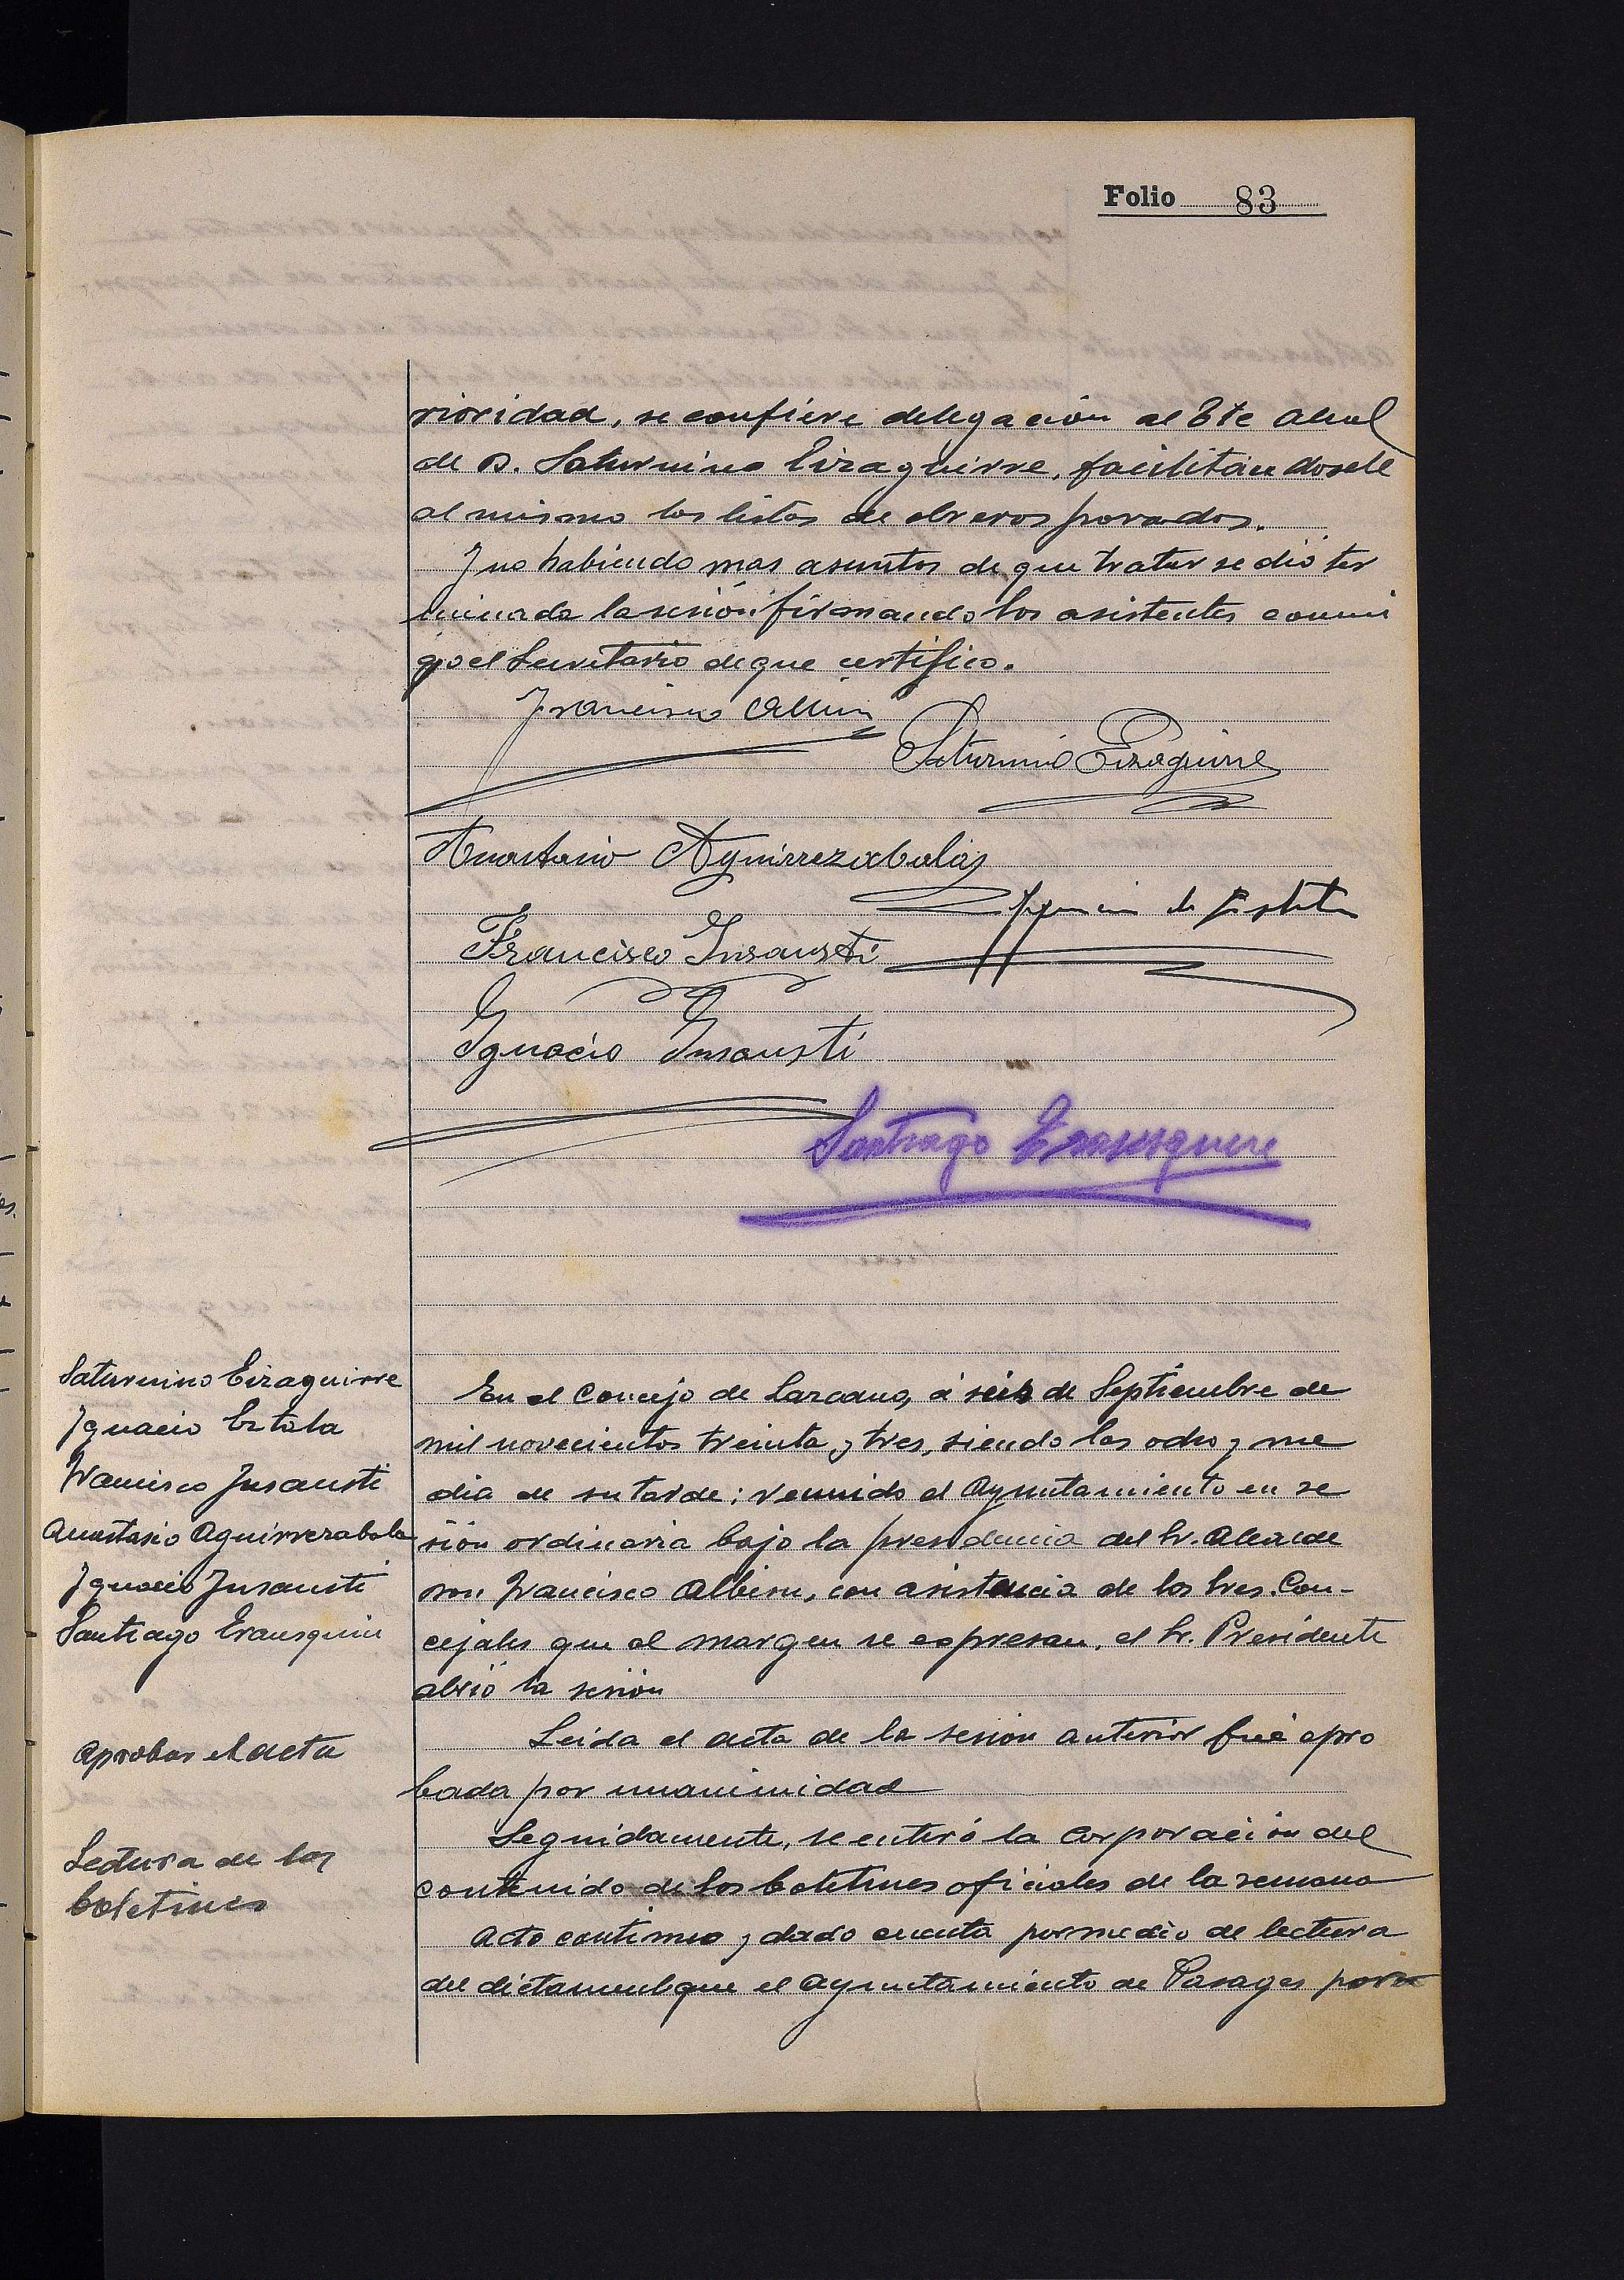 Folio 83
rioridad, se confiere delegación al Ete Alcal
de D. Saturnino Eizaguirre, facilitándosele
al mismo las listas de obreros parados.
Y no habiendo mas asuntos de que tratar se dió ter
minada la sesión firmando los asistentes conmi
go el Secretario de que certifico.
Francisco Albisu
Saturnino Eizaguirre
Anastasio Aguirrezabala
Francisco Insausti
Ignacio Insausti
Santiago Erausquin
Saturnino Eizaguirre
Ignacio Estala
Francisco Insausti
Anastasio Aguirrezabala
Ignacio Insausti
Santiago Erausquin
En el Concejo de Lazcano, á seis de Septiembre de
mil novecientos treinta y tres, siendo las ocho y me
dia de su tarde; reunido el Ayuntamiento en se
sión ordinaria bajo la presidencia del Sr. Alcalde
Don Francisco Albisu, con asistencia de los Sres. Con-
cejales que al margen se expresan, el Sr. Presidente
abrió la sesión
Aprobar el acta
Leida el acta de la sesión anterior fué apro
bada por unanimidad
Lectura de los
boletines
Seguidamente, se enteró la Corporación del
contenido de los boletines oficiales de la semana
Acto continuo y dado cuenta por medio de lectura
del dictamen que el Ayuntamiento de Pasages por